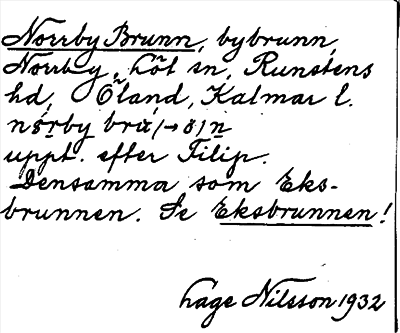 Norrby Brunn, bybrunn,
Norrby, Löt sn, Runstens
hd, Öland, Kalmar l.
nórby
uppt. efter Filip.
Densamma som Eks-
brunnen. Se Eksbrunnen!
Håge Nilsson 1932